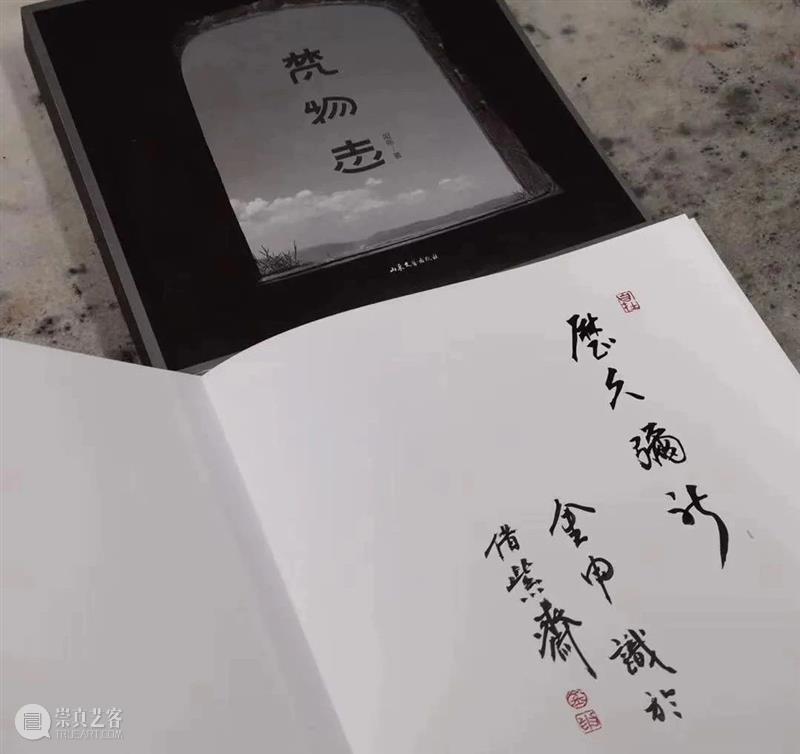 梵物志
山东文艺出版社
歷久彌新
金申識於
借紫齋
崇真艺客
TRUEART.COM